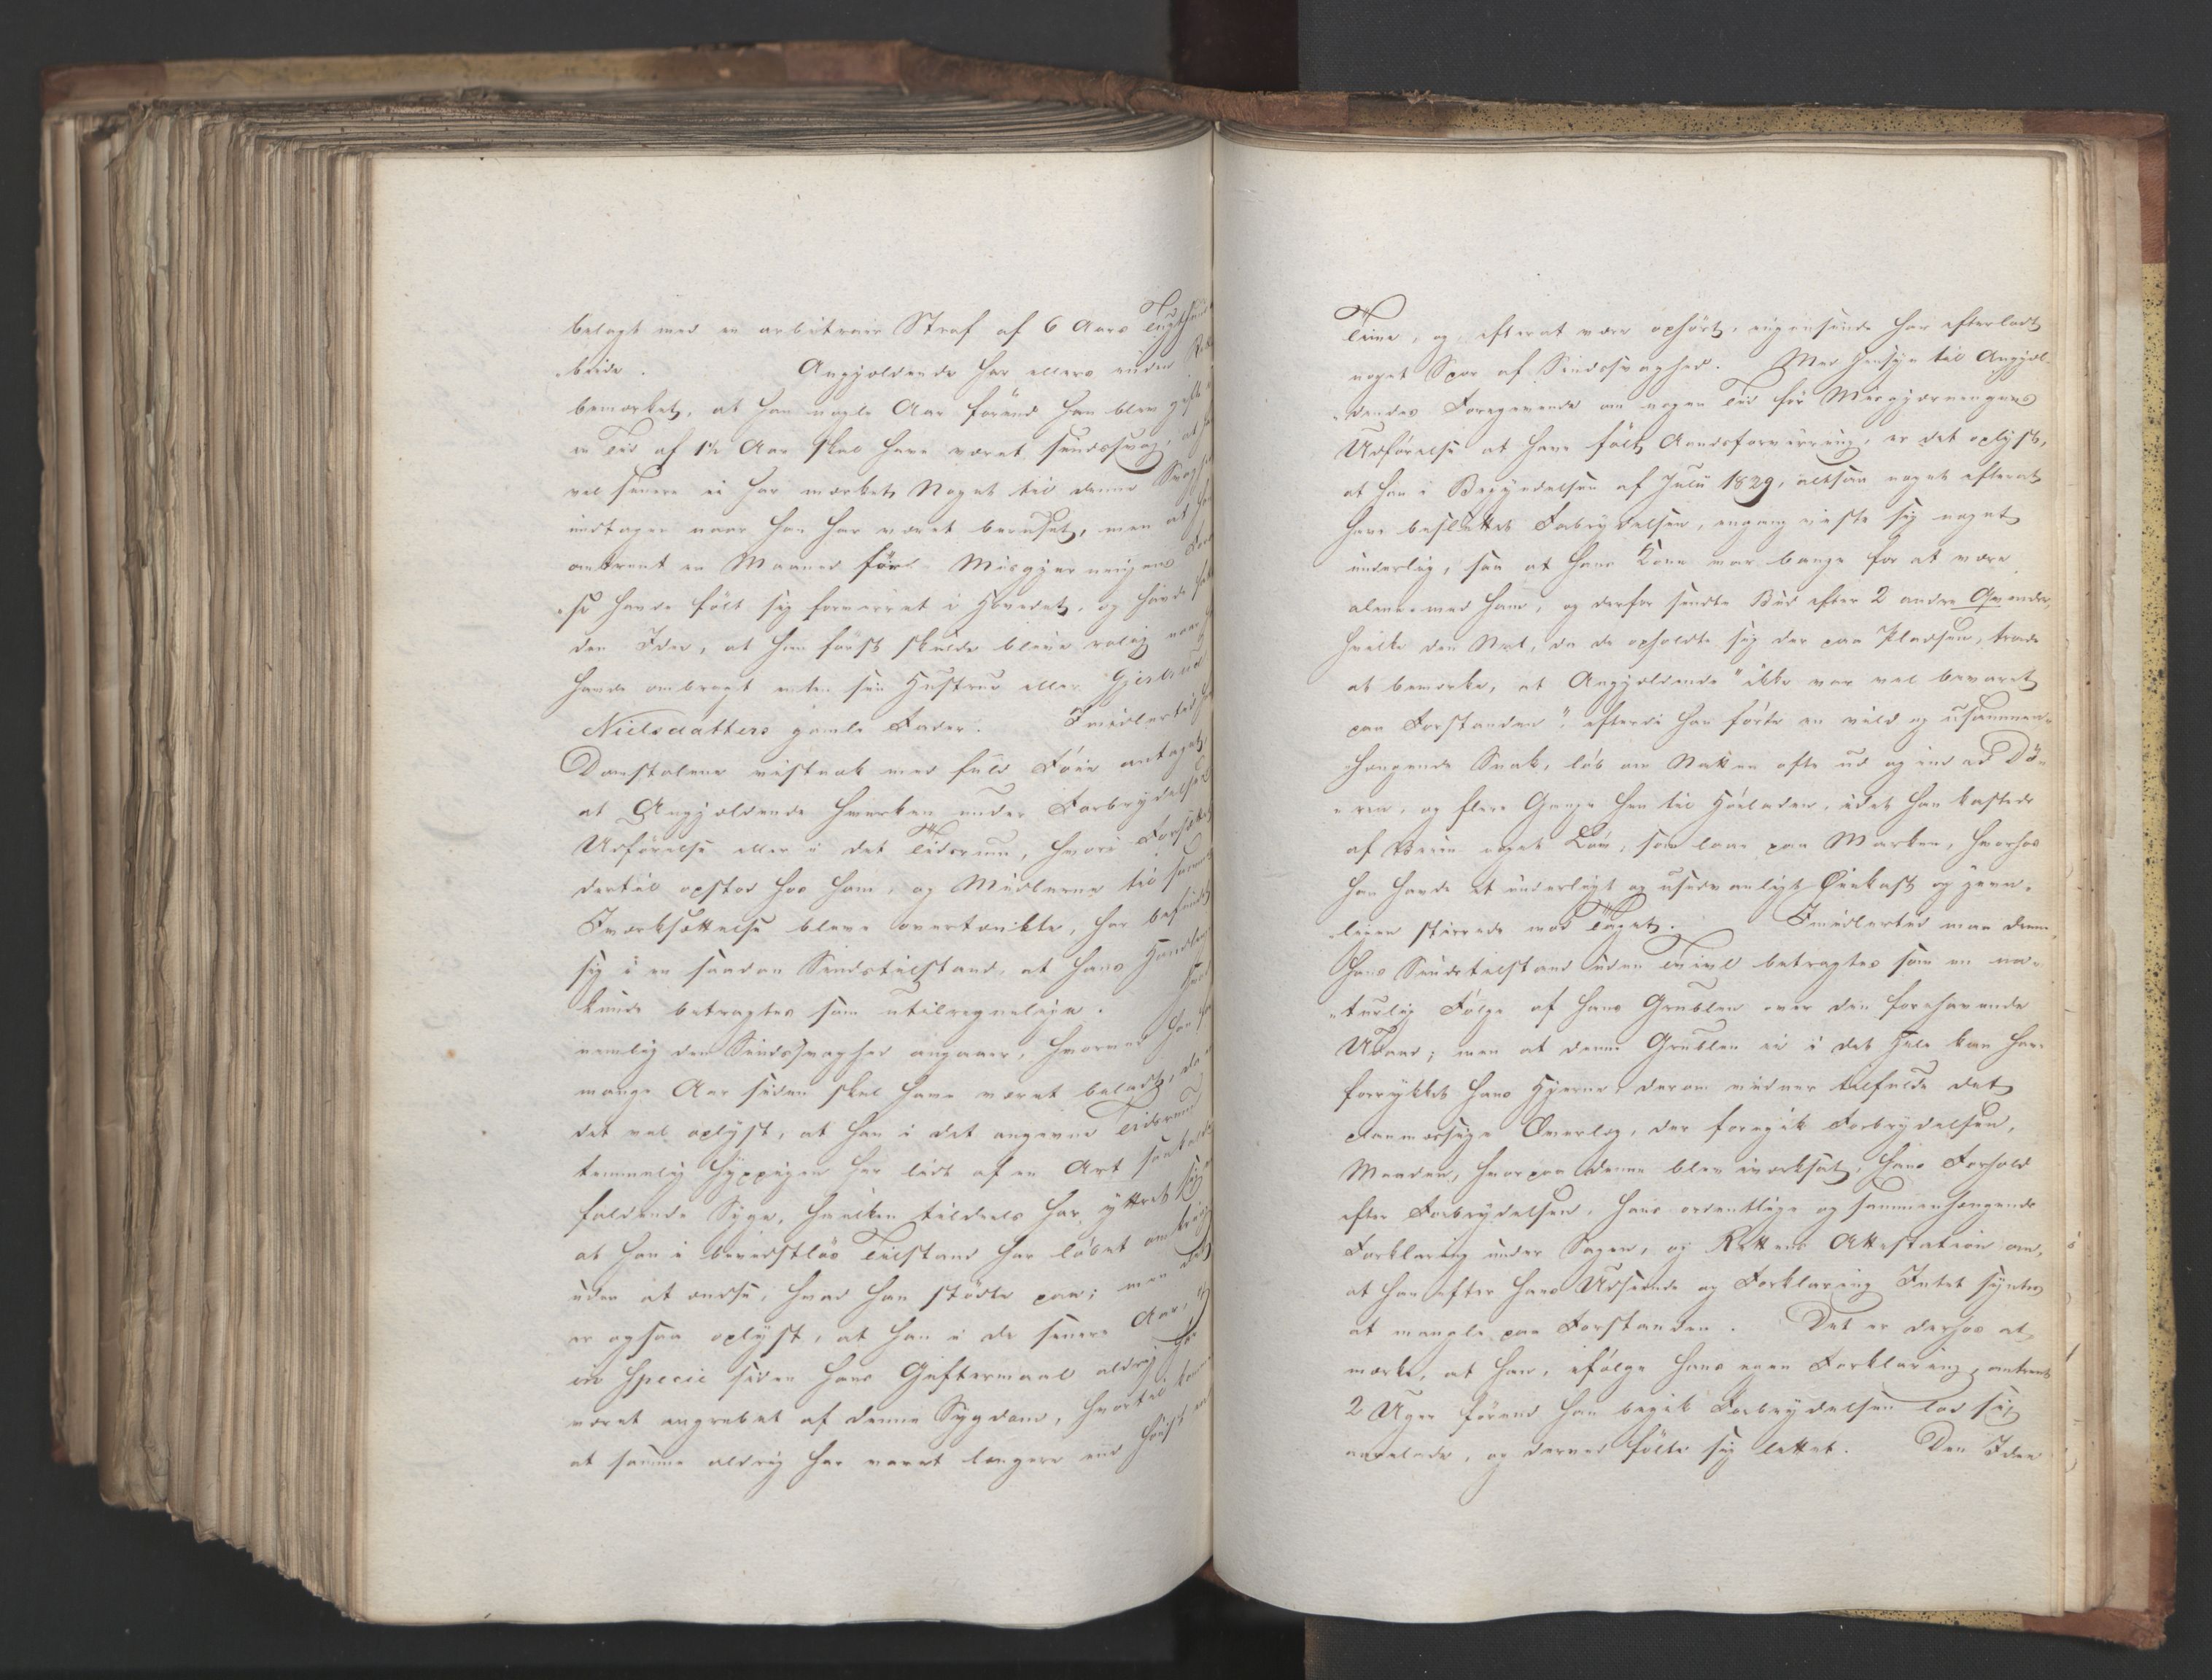 belagt med en arbitrair Straf af 6 Aars Tugthus
beide. Angjældende har ellers under
bemærket, at han nogle Aar förend han blev gift
en Tid af 1½ Aar skal have været sindssvag, at han
vel senere ei har mærket Noget til denne Svaghed
undtagen naar han har været beruset, men at han
omtrent en Maaned för Misgjerningens
se havde fölt sig forvirret i Hovedet, og havde
den Idee, at han först skulde blive rolig naar
havde ombragt enten sin Hustrue eller Gjertrud
Nielsdatters gamle Fader. Imidlertid
Domstolene vistnok med fuld Föie antaget,
at Angjældende hverken under Forbrydelsens
Udförelse eller i det Tidsrum, hvori Forsættet
dertil opstod hos ham, og Midlerne til sammes
Iværksættelse bleve overtænkte, har befundet
sig i en saadan Sindstilstand, at hans Handling
kunde betragtes som utilregnelige. Hvad
nemlig den Sindssvaghed angaaer, hvormed han for
mange Aar siden skal have været beladt, da
det vel oplyst, at han i det angivne Tidsrum
temmelig hyppigen har lidt af en Art saakaldet
faldende Syge, hvilken tildeels har yttret sig
at han i bevidstlös Tilstand har löbet omkring
uden at ændse, hvad han stödte paa; men det
er ogsaa oplyst, at han i de senere Aar, og
in specie siden hans Giftermaal aldrig har
været angrebet af denne Sygdom, hvortil kommer
at samme aldrig har varet længere end höist en
Time, og efterat være ophört, ingensinde har efterladt
noget Spor af Sindssvaghed. Med Hensyn til Angjæl-
dendes Foregivende om nogen Tid för Misgjerningens
Udförelse at have fölt Aandsforvirring, er det oplyst,
at han i Begyndelsen af Juli 1829, altsaa noget efterat
have besluttet Forbrydelsen, engang viste sig noget
underlig, saa at hans Kone var bange for at være
alene med ham, og derfor sendte Bud efter 2 andre Qvinder,
hvilke den Nat, da de opholdte sig der paa Pladsen, troede
at bemærke, at Angjældende "ikke var vel bevaret
paa Forstanden", efterdi han förte en vild og usammen-
hængende Snak, löb om Natten ofte ud og ind ad Dö-
ren, og flere Gange hen til Höeladen, idet han kastede
af Veien noget Löv, som laae paa Marken, hvorhos
han havde et underligt og usædvanligt Öiekast og jevn-
ligen stirrede mod Taget. Imidlertid maa denne
hans Sindstilstand uden Tvivl betragtes som en na-
turlig Fölge af hans Grublen over den forehavende
Udaad; men at denne Grublen ei i det Hele kan have
forrykket hans Hjerne, derom vidner tilfulde det
planmæssige Overlæg, der foregik Forbrydelsen,
Maaden, hvorpaa denne blev iværksat, hans Forhold
efter Forbrydelsen, hans ordentlige og sammenhængende
Forklaring under Sagen, og Rettens Attestation om,
at han efter hans Udseende og Forklaring Intet syntes
at mangle paa Forstanden. Det er derhos at
mærke, at han, ifölge hans egen Forklaring, omtrent
2 Uger förend han begik Forbrydelsen lod sig
aarelade, og derved fölte sig lettet. Den Idee